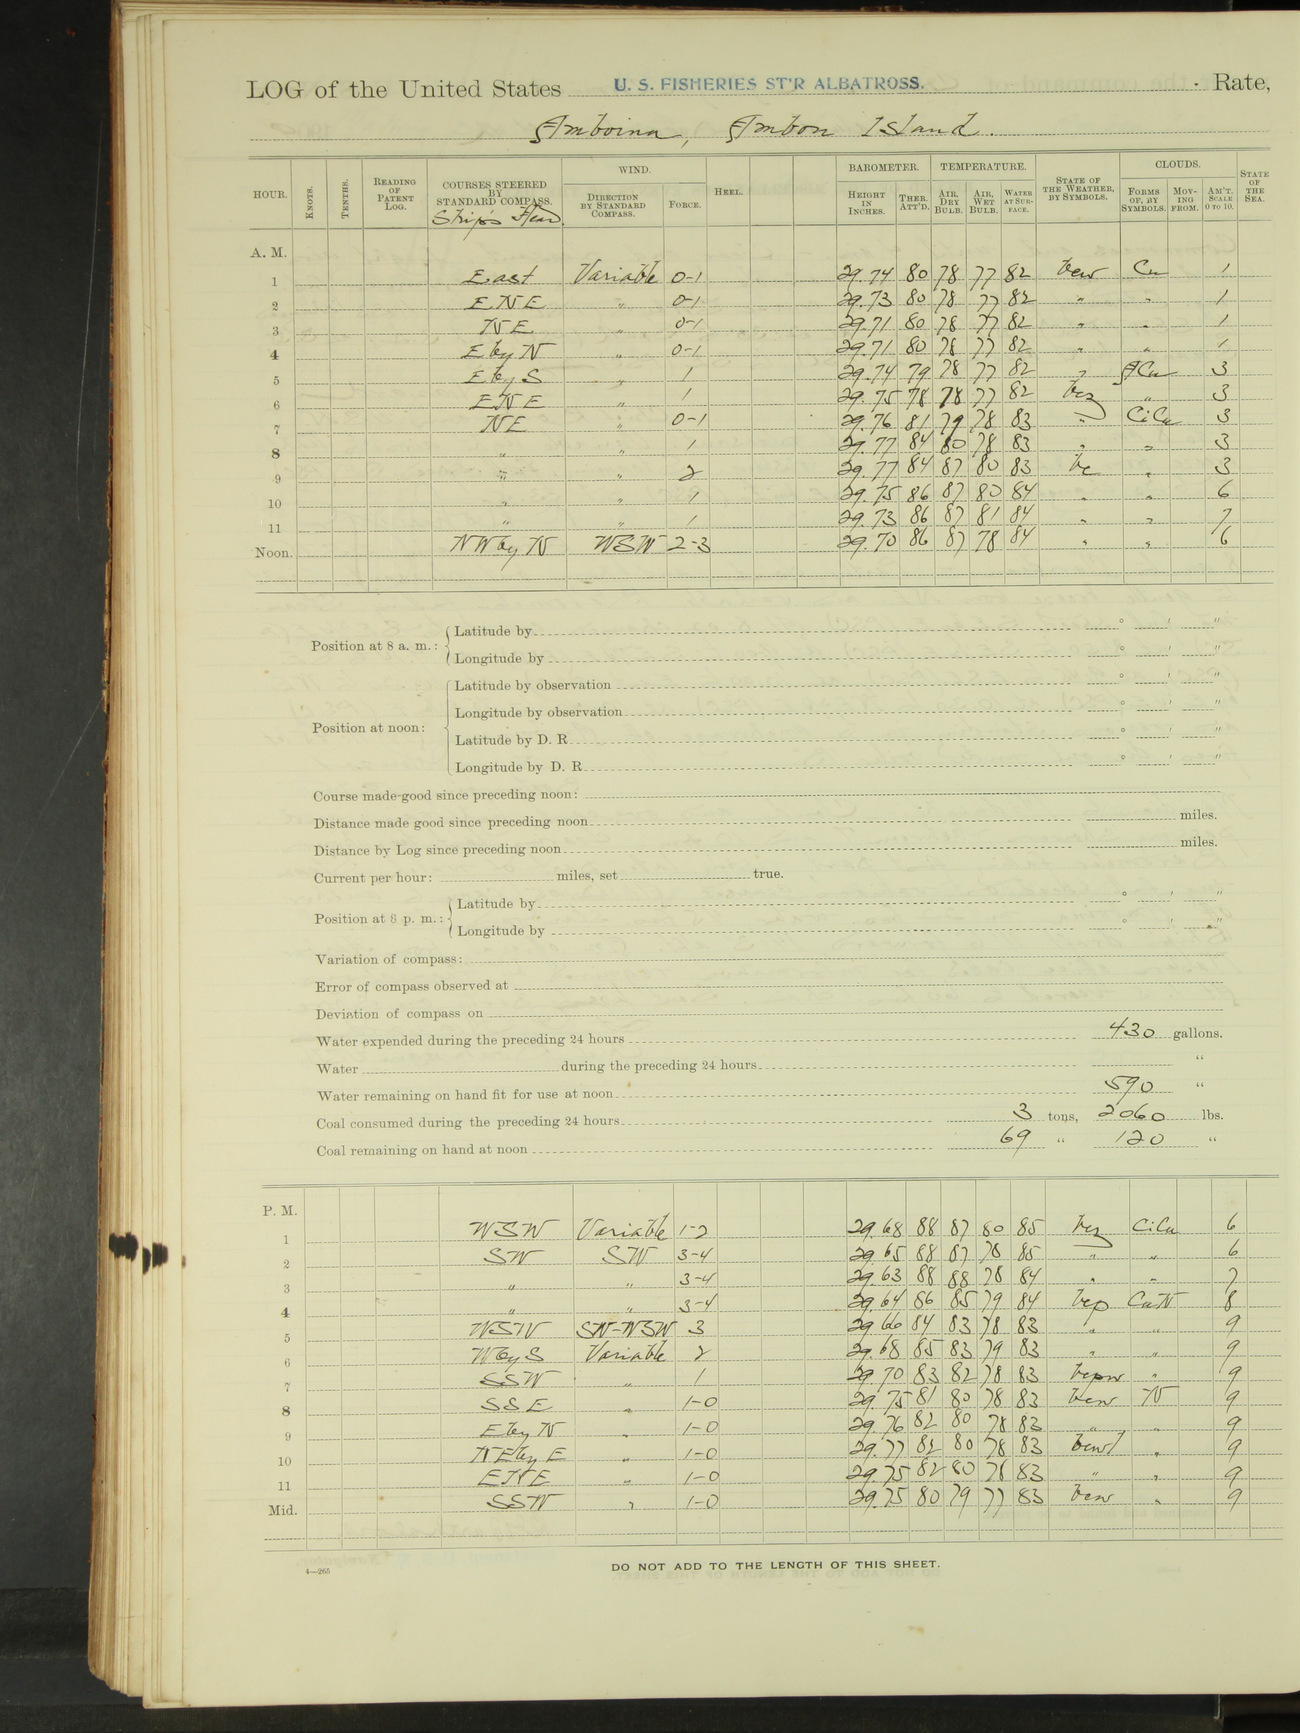 LOG of the United States U. S. FISHERIES ST'R ALBATROSS. Rate,
Amboina, Ambon Island.
HOUR. KNOTS. TENTHS. READING OF PATENT LOG. COURSES STEERED BY STANDARD COMPASS. Ship's Head. WIND. DIRECTION BY STANDARD COMPASS. FORCE. HEEL. BAROMETER. HEIGHT IN INCHES. THER. ATT'D. TEMPERATURE. AIR, DRY BULB. AIR, WET BULB. WATER AT SURFACE. STATE OF THE WEATHER, BY SYMBOLS. CLOUDS. FORMS OF, BY SYMBOLS. MOVING FROM. AM'T. SCALE 0 TO 10. STATE OF THE SEA.
A. M.
1 East Variable 0-1 29.74 80 78 77 82 bcw Cu 1
2 ENE " 0-1 29.73 80 78 77 82 " " 1
3 NE " 0-1 29.71 80 78 77 82 " " 1
4 E by N " 0-1 29.71 80 78 77 82 " " 1
5 E by S " 1 29.74 79 78 77 82 " ACu 3
6 ENE " 1 29.75 78 78 77 82 bcz " 3
7 NE " 0-1 29.76 81 79 78 83 " CiCu 3
8 " " 1 29.77 84 80 78 83 " " 3
9 " " 2 29.77 84 87 80 83 bc " 3
10 " " 1 29.75 86 87 80 84 " " 6
11 " " 1 29.73 86 87 81 84 " " 7
Noon. NW by N WSW 2-3 29.70 86 87 78 84 " " 6
Position at 8 a. m.: Latitude by ° ' "
Longitude by ° ' "
Position at noon: Latitude by observation ° ' "
Longitude by observation ° ' "
Latitude by D. R. ° ' "
Longitude by D. R. ° ' "
Course made good since preceding noon:
Distance made good since preceding noon miles.
Distance by Log since preceding noon miles.
Current per hour: miles, set true.
Position at 8 p. m.: Latitude by ° ' "
Longitude by ° ' "
Variation of compass:
Error of compass observed at
Deviation of compass on
Water expended during the preceding 24 hours 430 gallons.
Water during the preceding 24 hours "
Water remaining on hand fit for use at noon 590 "
Coal consumed during the preceding 24 hours 3 tons, 2060 lbs.
Coal remaining on hand at noon 69 " 120 "
P. M.
1 WSW Variable 1-2 29.68 88 87 80 85 bcz CiCu 6
2 SW SW 3-4 29.65 88 87 78 85 " " 6
3 " " 3-4 29.63 88 88 78 84 " " 7
4 " " 3-4 29.64 86 85 79 84 bcp CuN 8
5 WSW SW-WSW 3 29.66 84 83 78 83 " " 9
6 W by S Variable 2 29.68 85 83 79 83 " " 9
7 SSW " 1 29.70 83 82 78 83 bcpw " 9
8 SSE " 1-0 29.75 81 80 78 83 bcw N 9
9 E by N " 1-0 29.76 82 80 78 83 " " 9
10 NE by E " 1-0 29.77 82 80 78 83 bcwl " 9
11 ENE " 1-0 29.75 82 80 78 83 " " 9
Mid. SSW " 1-0 29.75 80 79 77 83 bcw " 9
DO NOT ADD TO THE LENGTH OF THIS SHEET.
4—265